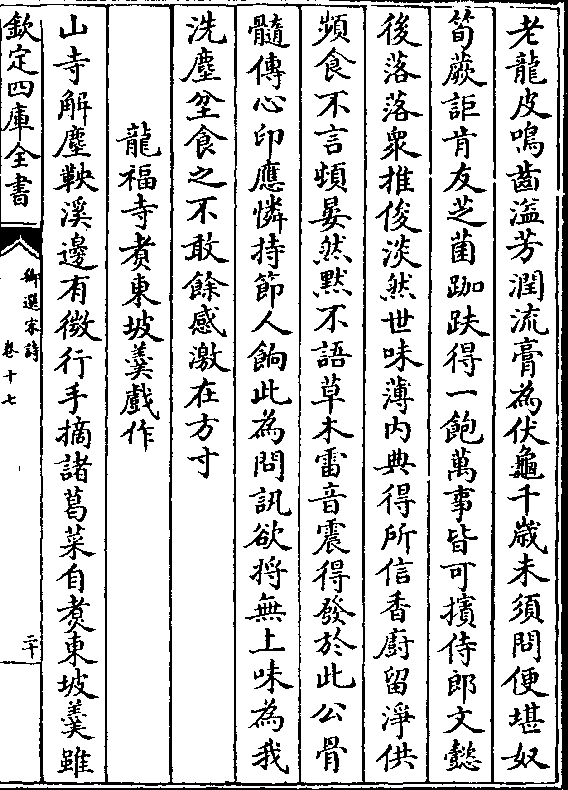 老龍皮鳴齒溢芳潤流膏為伏龜千歲未須問便堪奴
筍蕨詎肯友芝菌跏趺得一飽萬事皆可擯侍郎文懿
後落落衆推俊淡然世味薄内典得所信香廚留淨供
頻食不言頓晏然黙不語草木雷音震得發於此公骨
髓傳心印應憐持節人餉此為問訊欲將無上味為我
洗塵坌食之不敢餘感激在方寸
龍福寺煮東坡羹戲作
山寺解塵鞅溪邊有微行手摘諸葛菜自煮東坡羹雖
欽定四庫全書
御選宋詩
卷十七
二十